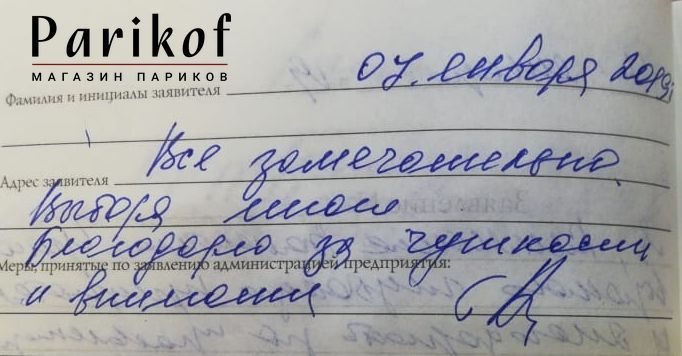 Parikof
МАГАЗИН ПАРИКОВ
07. января 2019г
Фамилия и инициалы заявителя
Все замечательно
Адрес заявителя
Выбора много
Благодарю за чуткость
Меры, принятые по заявлению администрацией предприятия:
и внимание